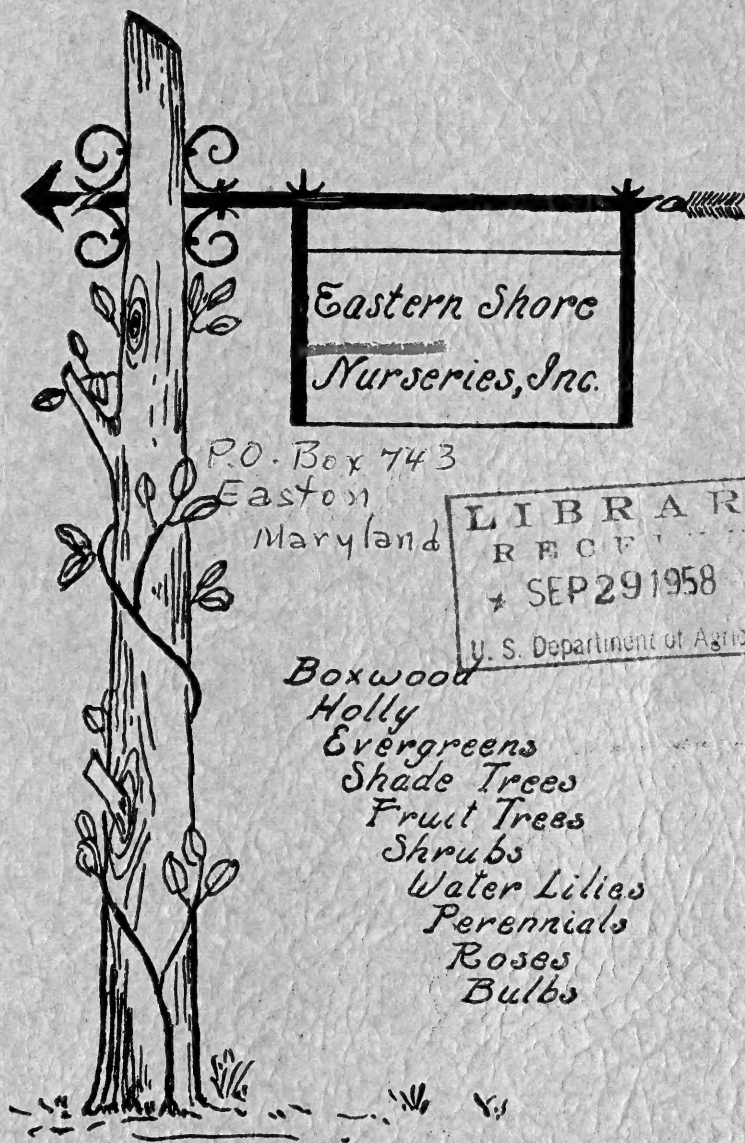 Eastern Shore
Nurseries, Inc.
P.O. Box 743
Easton
Maryland
LIBRAR
SEP 29 1958
U. S. Department of
Boxwood
Holly
Evergreens
Shade Trees
Fruit Trees
Shrubs
Water Lilies
Perennials
Roses
Bulbs